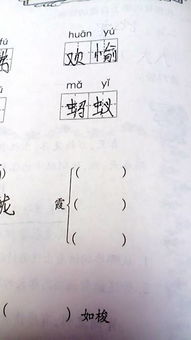 fú
huān yú
欢愉
mǎ yǐ
蚂蚁
) ( )
霞 ( )
( )
( ) 如梭